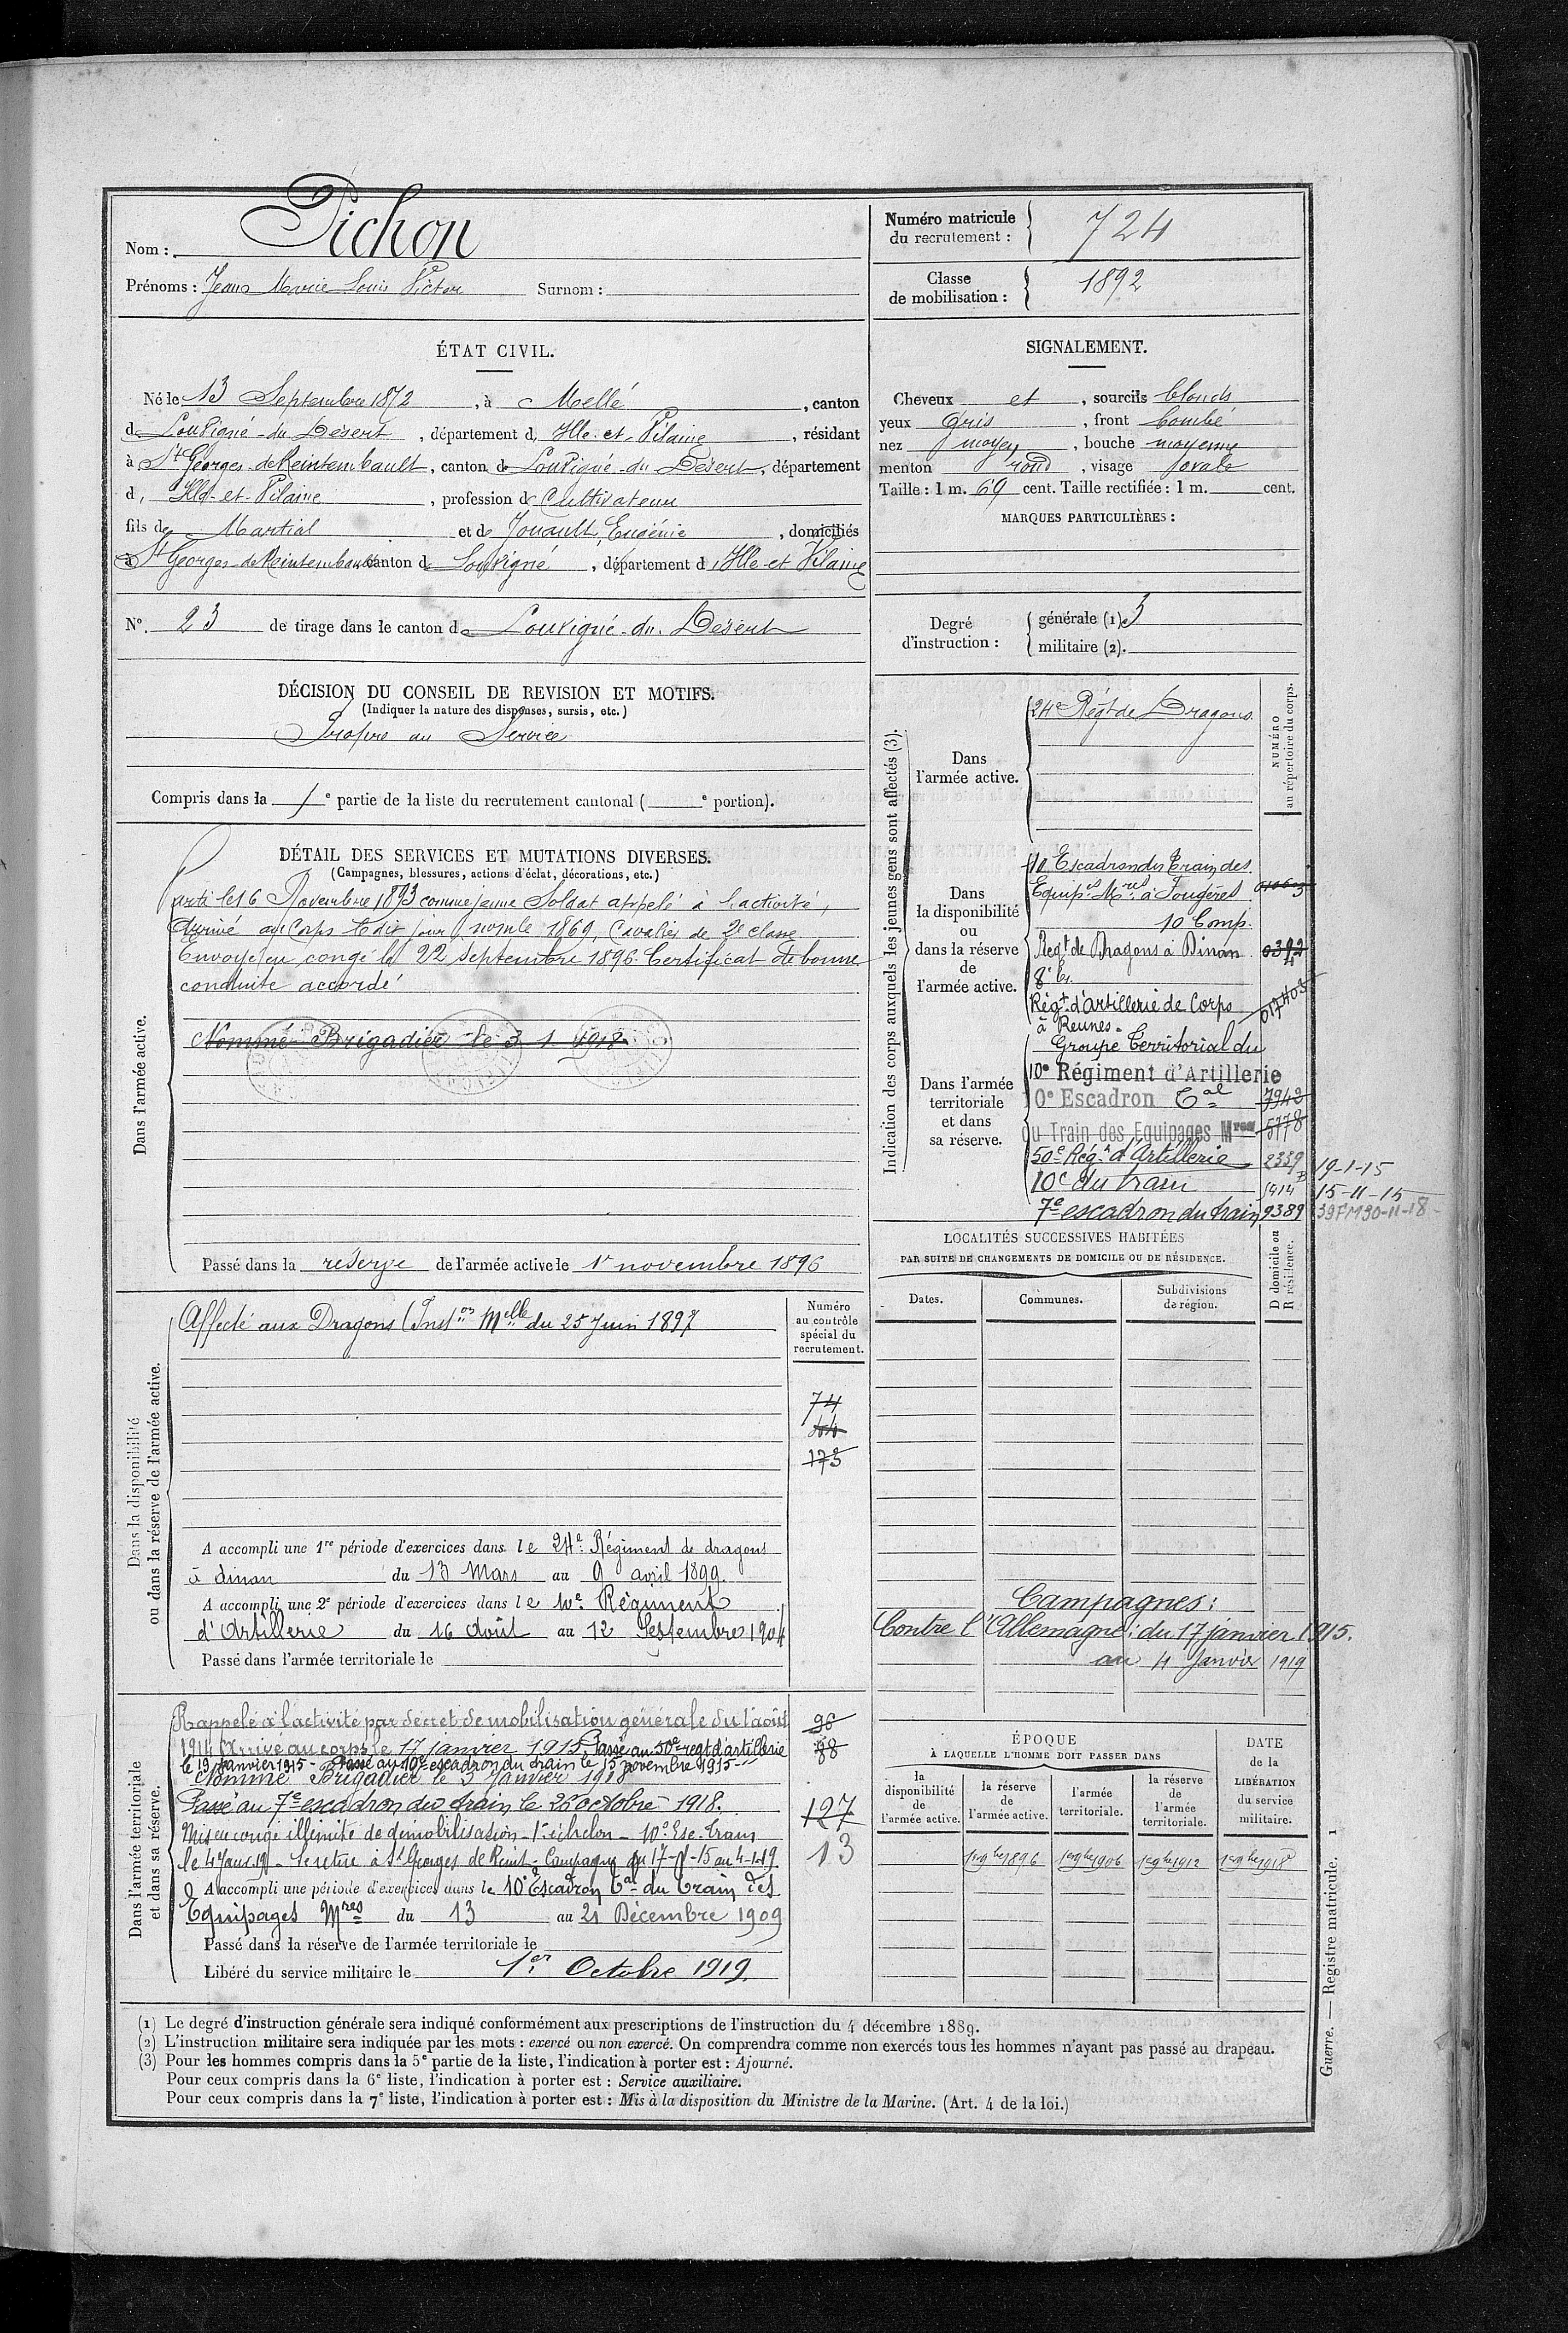 Nom : Pichon
Prénoms : Jean Marie Louis Victor Surnom :
Numéro matricule du recrutement : 724
Classe de mobilisation : 1892
ÉTAT CIVIL.
Né le 13 Septembre 1872, à Mellé, canton
de Louvigné-du-Désert, département d, Ille-et-Vilaine, résidant
à St Georges-de-Reintembault, canton de Louvigné-du-Désert, département
d, Ille-et-Vilaine, profession de Cultivateur
fils de Martial et de Jouault, Eugénie, domiciliés
à St Georges-de-Reintembault canton de Louvigné, département d, Ille-et-Vilaine
N°. 23 de tirage dans le canton de Louvigné-du-Désert
SIGNALEMENT.
Cheveux et, sourcils blonds
yeux gris, front bombé
nez moyen, bouche moyenne
menton rond, visage ovale
Taille : 1 m. 69 cent. Taille rectifiée : 1 m. cent.
MARQUES PARTICULIÈRES :
Degré d'instruction :
générale (1) 3
militaire (2).
DÉCISION DU CONSEIL DE REVISION ET MOTIFS.
(Indiquer la nature des dispenses, sursis, etc.)
Propre au Service
Compris dans la 1e partie de la liste du recrutement cantonal ( e portion).
DÉTAIL DES SERVICES ET MUTATIONS DIVERSES.
(Campagnes, blessures, actions d'éclat, décorations, etc.)
Dans l'armée active.
Parti le 16 Novembre 1893 comme jeune Soldat appelé à l'activité,
Arrivé au Corps le dit jour, no mle 1869, Cavalier de 2e classe.
Envoyé en congé le 22 Septembre 1896. Certificat de bonne
conduite accordé
Nommé Brigadier le 3 1 1918
Passé dans la réserve de l'armée active le 1r novembre 1896
Indication des corps auxquels les jeunes gens sont affectés (3).
NUMÉRO au répertoire du corps.
Dans l'armée active.
24e Régt de Dragons.
Dans la disponibilité ou dans la réserve de l'armée active.
10 Escadron du Train des
Equip.es M.res à Fougères
10 Comp.
Regt de Dragons à Dinan
Régt d'artillerie de Corps
à Rennes.
Dans l'armée territoriale et dans sa réserve.
Groupe Territorial du
10e Régiment d'Artillerie
10e Escadron Tal 7943
du Train des Equipages Mres 5778
50e Régt d'Artillerie 2339 19-1-15
10e du train 15-11-15
7e escadron du train 9389
Dans la disponibilité ou dans la réserve de l'armée active.
Affecté aux Dragons (Inston Melle du 25 Juin 1897
Numéro au contrôle spécial du recrutement.
74
44
175
A accompli une 1re période d'exercices dans le 24e Régiment de dragons
à dinan du 13 Mars au 9 avril 1899.
A accompli une 2e période d'exercices dans le 10e Régiment
d'Artillerie du 16 Août au 12 Septembre 1904
Passé dans l'armée territoriale le
LOCALITÉS SUCCESSIVES HABITÉES
PAR SUITE DE CHANGEMENTS DE DOMICILE OU DE RÉSIDENCE.
Dates. Communes. Subdivisions de région. D domicile ou R résidence.
Campagnes :
Contre l'Allemagne : du 17 janvier 1915.
au 4 Janvier 1919
Dans l'armée territoriale et dans sa réserve.
Rappelé à l'activité par décret de mobilisation générale du 1 août
1914 Arrivé au corps le 17 Janvier 1915 Passé au 50e regt d'artillerie
le 19 Janvier 1915 - Passé au 10e escadron du train le 15 novembre 1915
Nommé Brigadier le 3 Janvier 1918
Passé au 7e escadron du train le 26 octobre 1918.
Mis en congé illimité de démobilisation - 1r échelon - 10e Esc. train
le 4 Janv 19 - Se retire à St Georges de Reint - Campagne du 17-1-15 au 4-1-19
A accompli une période d'exercices dans le 10e Escadron Tal du Train des
Equipages Mres du 13 au 21 Décembre 1909
Passé dans la réserve de l'armée territoriale le
Libéré du service militaire le 1er Octobre 1919
96
88
127
13
ÉPOQUE
À LAQUELLE L'HOMME DOIT PASSER DANS
la disponibilité de l'armée active.
la réserve de l'armée active.
l'armée territoriale.
la réserve de l'armée territoriale.
DATE de la LIBÉRATION du service militaire.
1er 9bre 1896 1er 9bre 1906 1er 9bre 1912 1er 9bre 1918
(1) Le degré d'instruction générale sera indiqué conformément aux prescriptions de l'instruction du 4 décembre 1889.
(2) L'instruction militaire sera indiquée par les mots : exercé ou non exercé. On comprendra comme non exercés tous les hommes n'ayant pas passé au drapeau.
(3) Pour les hommes compris dans la 5e partie de la liste, l'indication à porter est : Ajourné.
Pour ceux compris dans la 6e liste, l'indication à porter est : Service auxiliaire.
Pour ceux compris dans la 7e liste, l'indication à porter est : Mis à la disposition du Ministre de la Marine. (Art. 4 de la loi.)
Guerre. — Registre matricule. 1